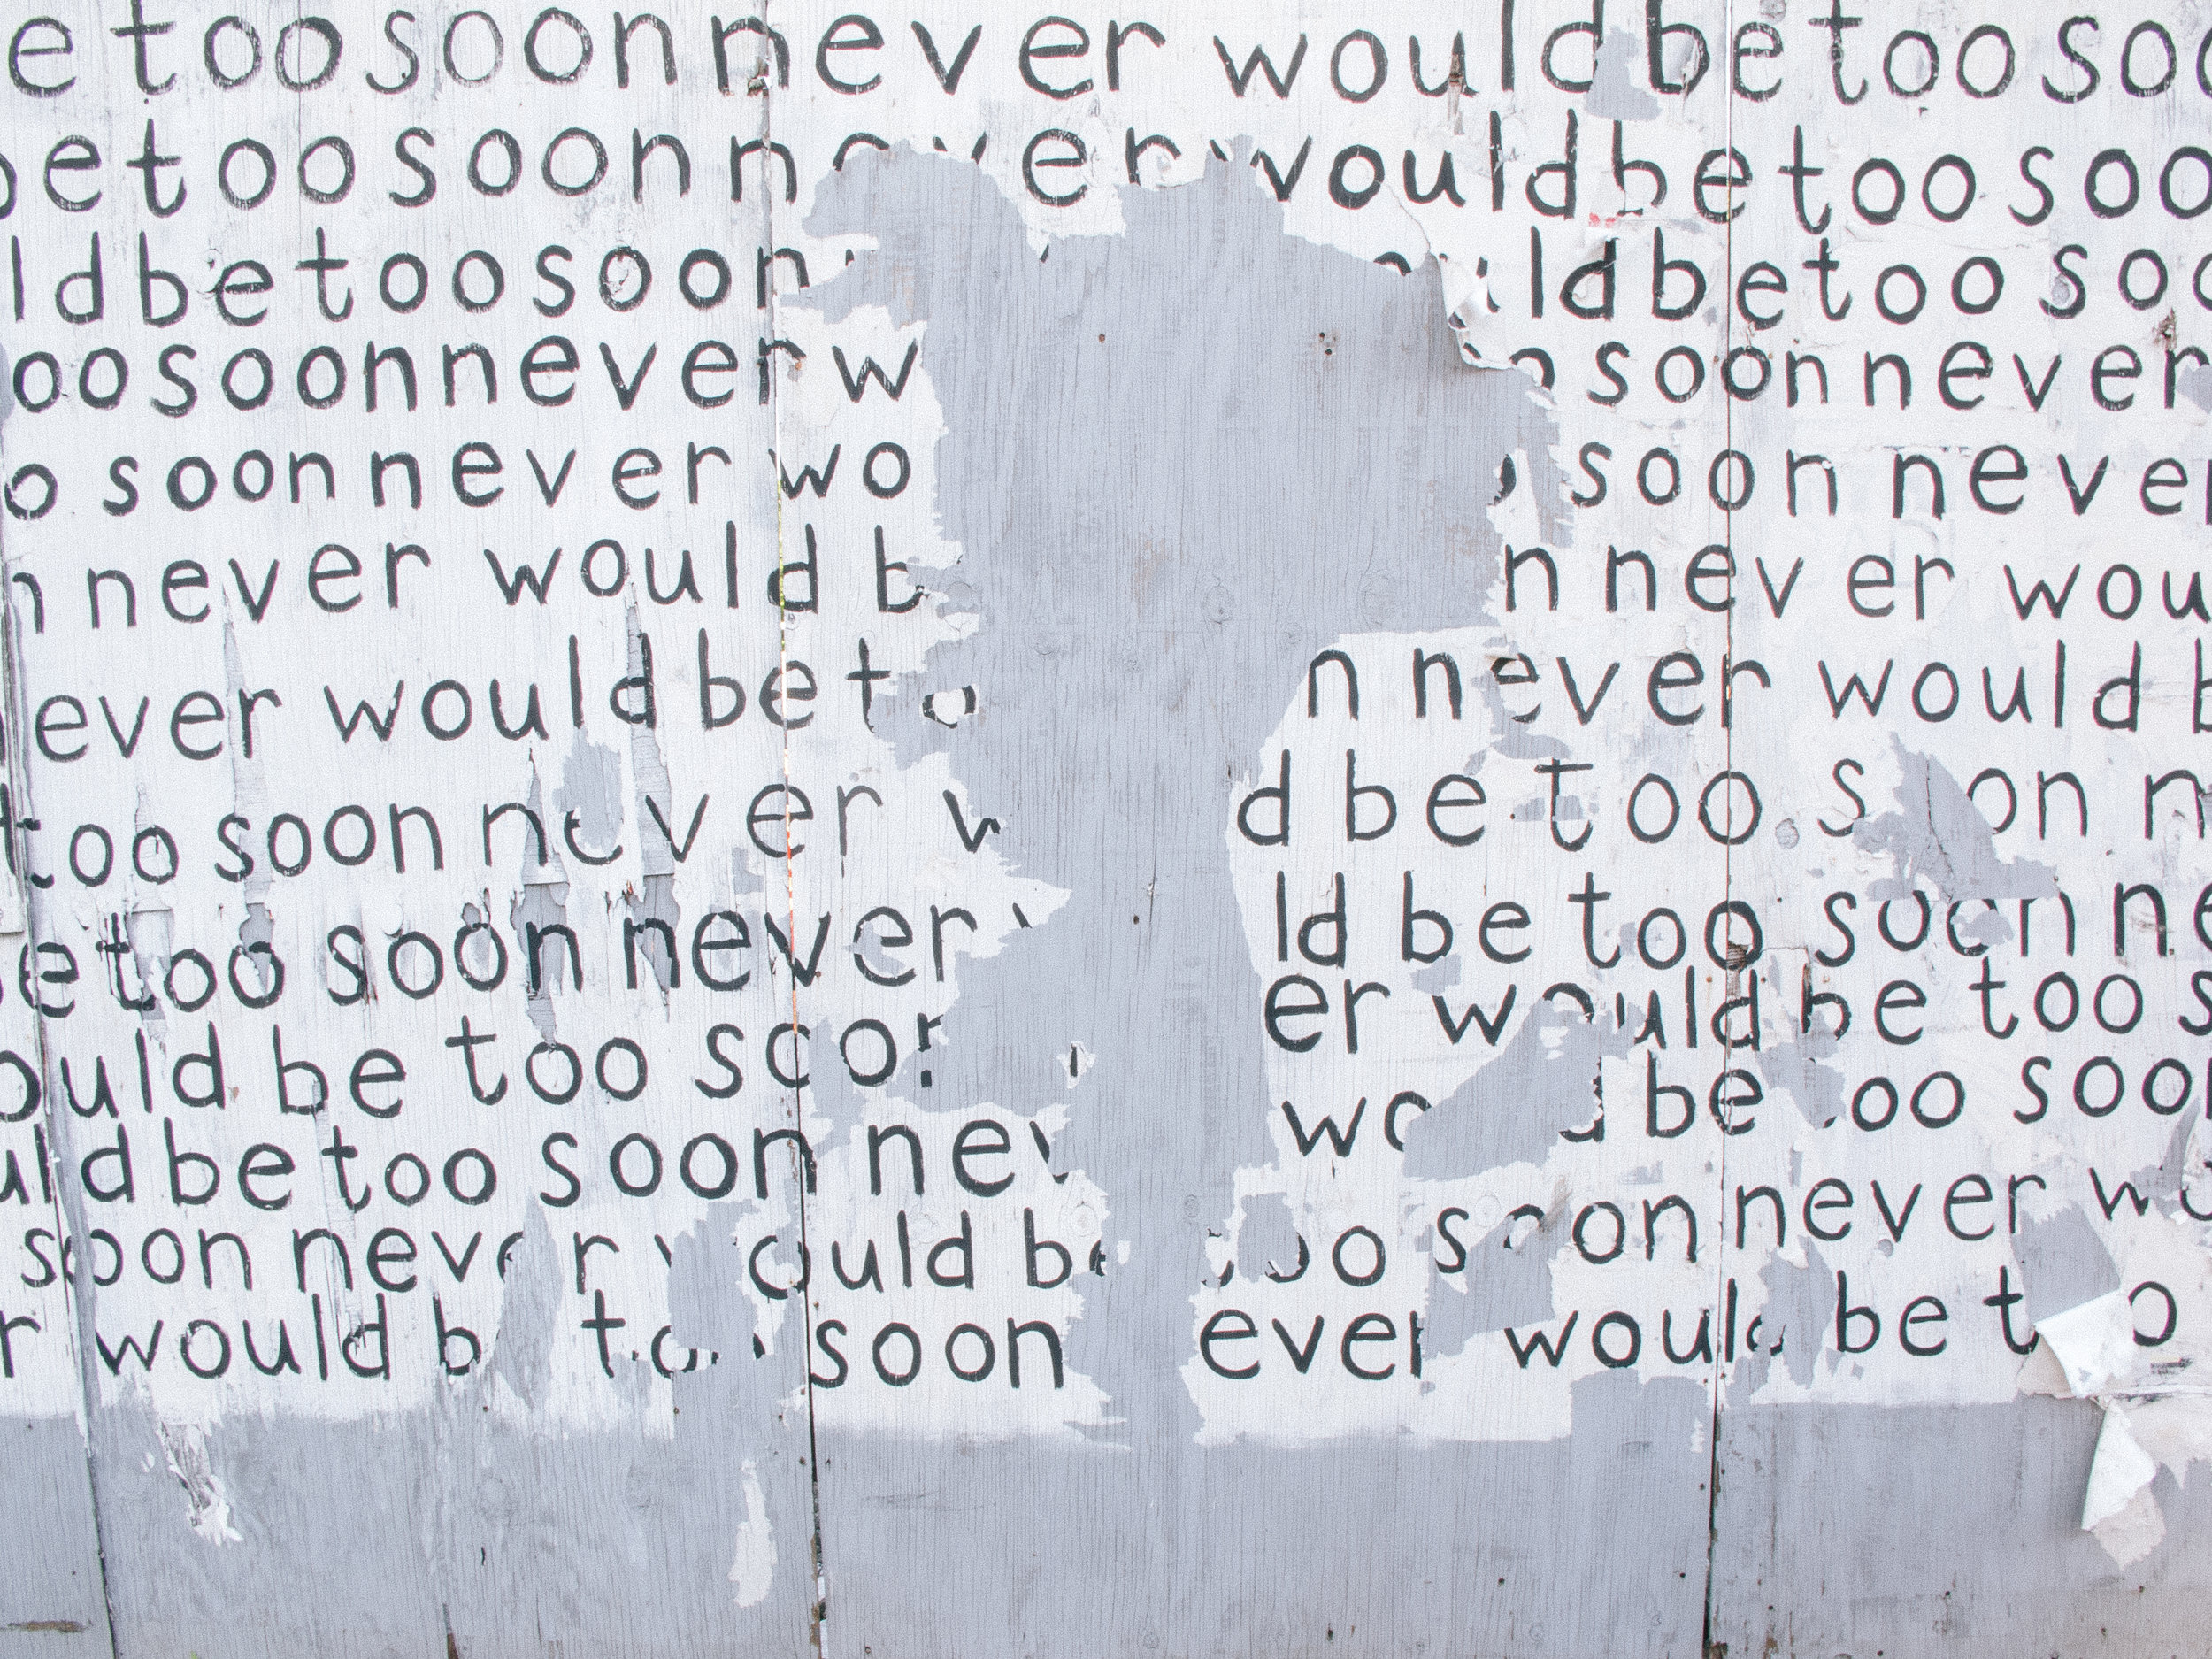 e too soon never would be too soo
be too soon never would be too soo
ld be too soon ould be too soo
oo soon never w o soon never
o soon never wo soon never
n never would b n never wou
ever would be to n never would b
too soon never w d be too soon n
be too soon never ld be too soon ne
ould be too soon er would be too s
uld be too soon nev wo d be too soon
soon never would be too soon never wo
r would b too soon ever would be too